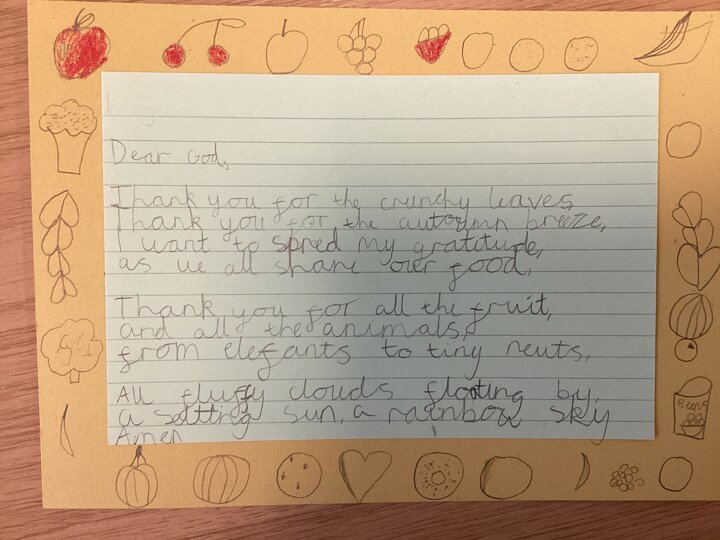 Dear God,
Thank you for the crunchy leaves,
Thank you for the autoymn breeze,
I want to spred my gratitude,
as we all share our food,
Thank you for all the fruit,
and all the animals,
from elefants to tiny neuts,
All fluffy clouds floating by,
a setting sun, a rainbow sky
Amen
Beans